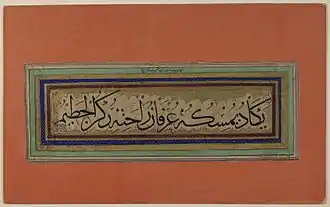 يَكادُ يُمْسِكُهُ عِرْفانُ راحَتِهِ رُكْنُ الحَطِيمِ